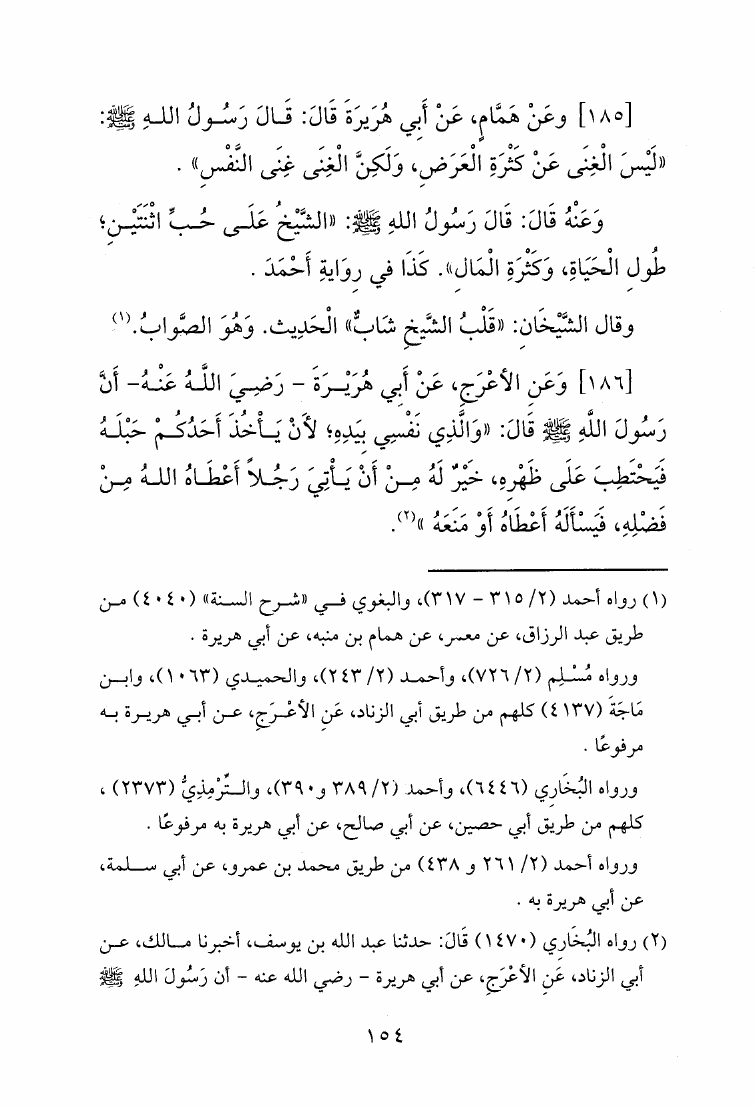 [١٨٥] وعَنْ هَمَّامٍ، عَنْ أَبِي هُرَيرَةَ قَالَ: قَالَ رَسُولُ اللهِ ﷺ:
«لَيْسَ الْغِنَى عَنْ كَثْرَةِ الْعَرَضِ، وَلَكِنَّ الْغِنَى غِنَى النَّفْسِ» .
وَعَنْهُ قَالَ: قَالَ رَسُولُ اللهِ ﷺ: «الشَّيْخُ عَلَى حُبِّ اثْنَتَيْنِ؛
طُولِ الْحَيَاةِ، وَكَثْرَةِ الْمَالِ». كَذَا في رِوَايةِ أَحْمَدَ .
وقال الشَّيْخَانِ: «قَلْبُ الشَّيْخِ شَابٌّ» الْحَدِيث. وَهُوَ الصَّوابُ.(١)
[١٨٦] وَعَنِ الأعْرَجِ، عَنْ أَبي هُرَيْرَةَ - رَضِيَ اللَّهُ عَنْهُ- أَنَّ
رَسُولَ اللَّهِ ﷺ قَالَ: «وَالَّذِي نَفْسِي بِيَدِهِ؛ لأَنْ يَأْخُذَ أَحَدُكُمْ حَبْلَهُ
فَيَحْتَطِبَ عَلَى ظَهْرِهِ، خَيْرٌ لَهُ مِنْ أَنْ يَأْتِيَ رَجُلاً أَعْطَاهُ اللهُ مِنْ
فَضْلِهِ، فَيَسْأَلَهُ أَعْطَاهُ أَوْ مَنَعَهُ »(٢).
(١) رواه أحمد (٢/ ٣١٥ - ٣١٧)، والبغوي في «شرح السنة» (٤٠٤٠) من
طريق عبد الرزاق، عن معمر، عن همام بن منبه، عن أبي هريرة .
ورواه مُسْلِم (٢/ ٧٢٦)، وأحمد (٢/ ٢٤٣)، والحميدي (١٠٦٣)، وابن
مَاجَةَ (٤١٣٧) كلهم من طريق أبي الزناد، عَنِ الأعْرَجِ، عن أبي هريرة به
مرفوعًا .
ورواه البُخَارِي (٦٤٤٦)، وأحمد (٢/ ٣٨٩ و٣٩٠)، والتِّرْمِذِيُّ (٢٣٧٣) ،
كلهم من طريق أبي حصين، عن أبي صالح، عن أبي هريرة به مرفوعًا .
ورواه أحمد (٢/ ٢٦١ و ٤٣٨) من طريق محمد بن عمرو، عن أبي سلمة،
عن أبي هريرة به .
(٢) رواه البُخَارِي (١٤٧٠) قَالَ: حدثنا عبد الله بن يوسف، أخبرنا مالك، عن
أبي الزناد، عَنِ الأعْرَجِ، عن أبي هريرة - رضي الله عنه - أن رَسُولَ اللهِ ﷺ
١٥٤